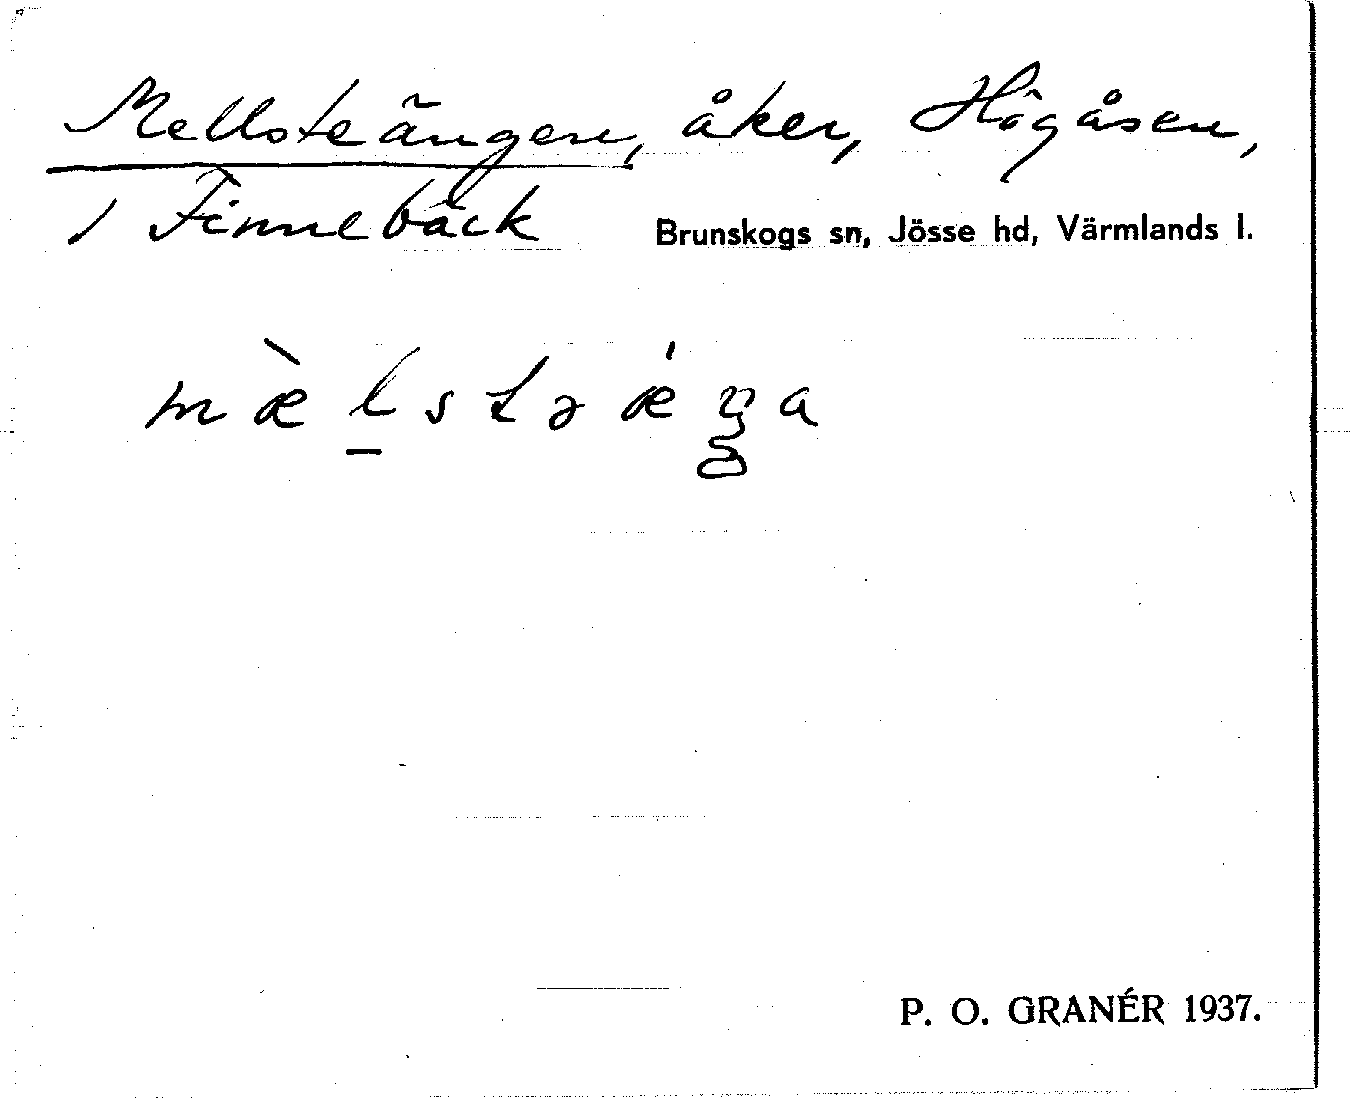 Mellsteängen, åker, Högåsen,
1 Finnebäck Brunskogs sn, Jösse hd, Värmlands l.
mæ̀l̠stəǽŋa
P. O. GRANÉR 1937.